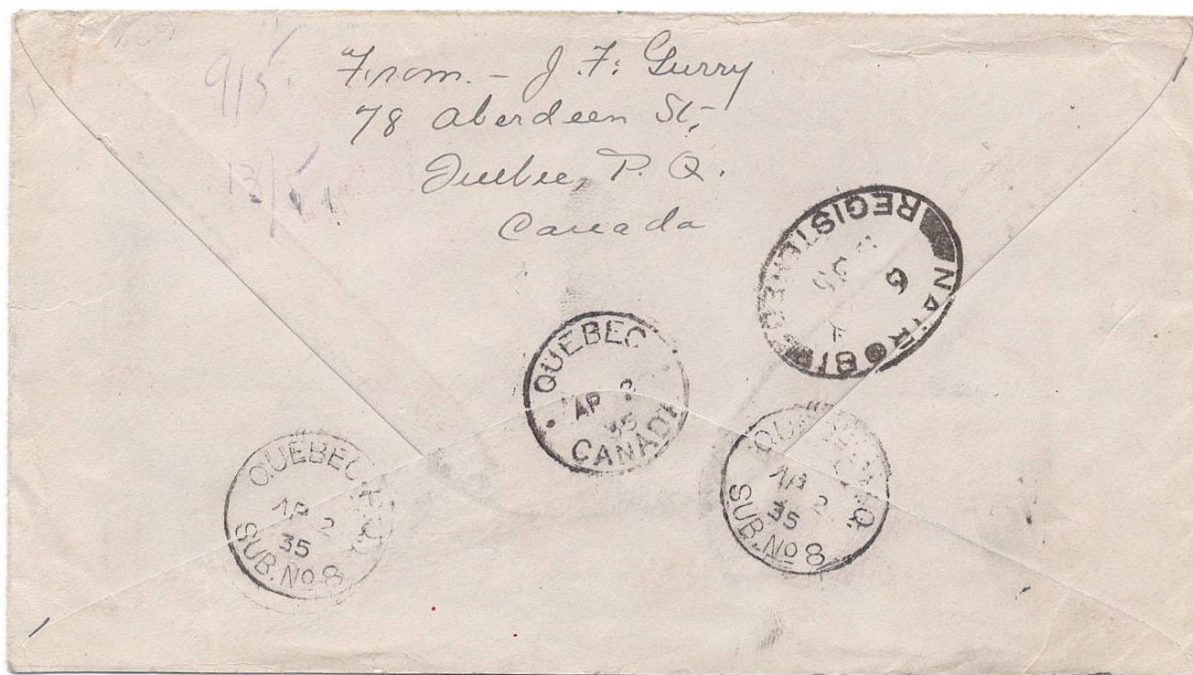 9/5
From. - J. F. Gurry
78 Aberdeen St,
Quebec, P. Q.
Canada
13/5
REGISTERED
NAIROBI
6
QUEBEC
AP 2
35
CANADA
QUEBEC P.Q.
AP 2
35
SUB. No 8
QUEBEC P.Q.
AP 2
35
SUB. No 8